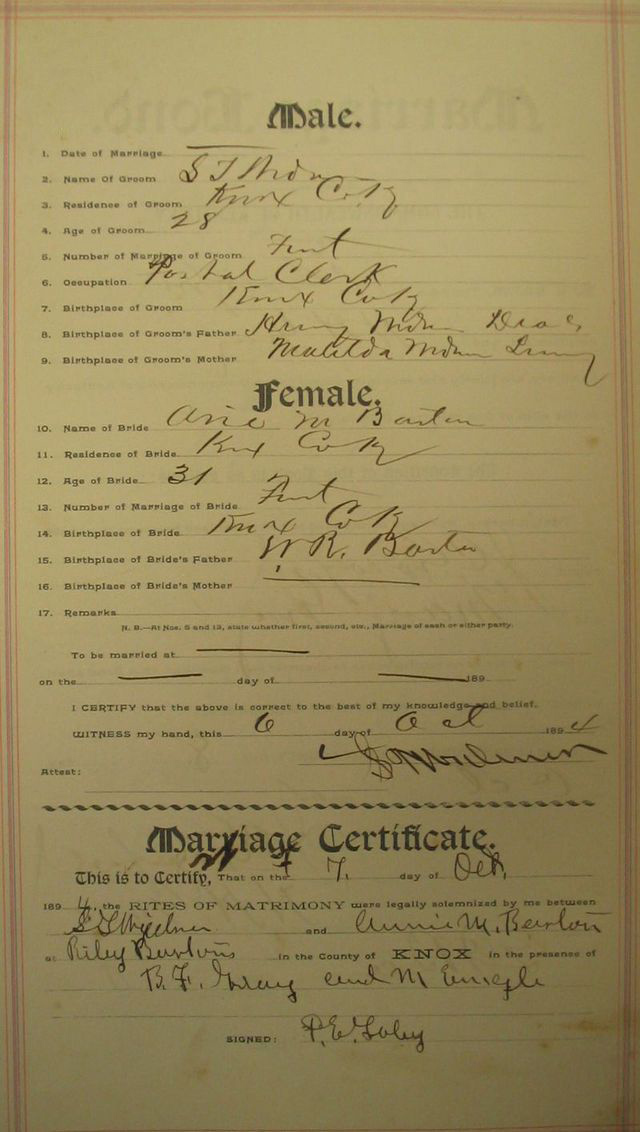 Male.
1. Date of Marriage
2. Name Of Groom S T
3. Residence of Groom Knox Co Ky
4. Age of Groom 28
5. Number of Marriage of Groom First
6. Occupation Postal Clerk
7. Birthplace of Groom Knox Co Ky
8. Birthplace of Groom's Father
9. Birthplace of Groom's Mother Matilda
Female.
10. Name of Bride M Barton
11. Residence of Bride Knx Co Ky
12. Age of Bride 31
13. Number of Marriage of Bride First
14. Birthplace of Bride Knox Co Ky
15. Birthplace of Bride's Father W R. Barton
16. Birthplace of Bride's Mother
17. Remarks
N. B.—At Nos. 5 and 13, state whether first, second, etc., Marriage of each or either party.
To be married at
on the day of 189
I CERTIFY that the above is correct to the best of my knowledge and belief.
WITNESS my hand, this 6 day of Oct 1894
Attest:
Marriage Certificate.
This is to Certify, That on the 7. day of Oct.
1894. the RITES OF MATRIMONY were legally solemnized by me between
S T and Annie M. Barton
at Riley Bartons in the County of KNOX in the presence of
B. F. Gray and M
SIGNED: P. E.